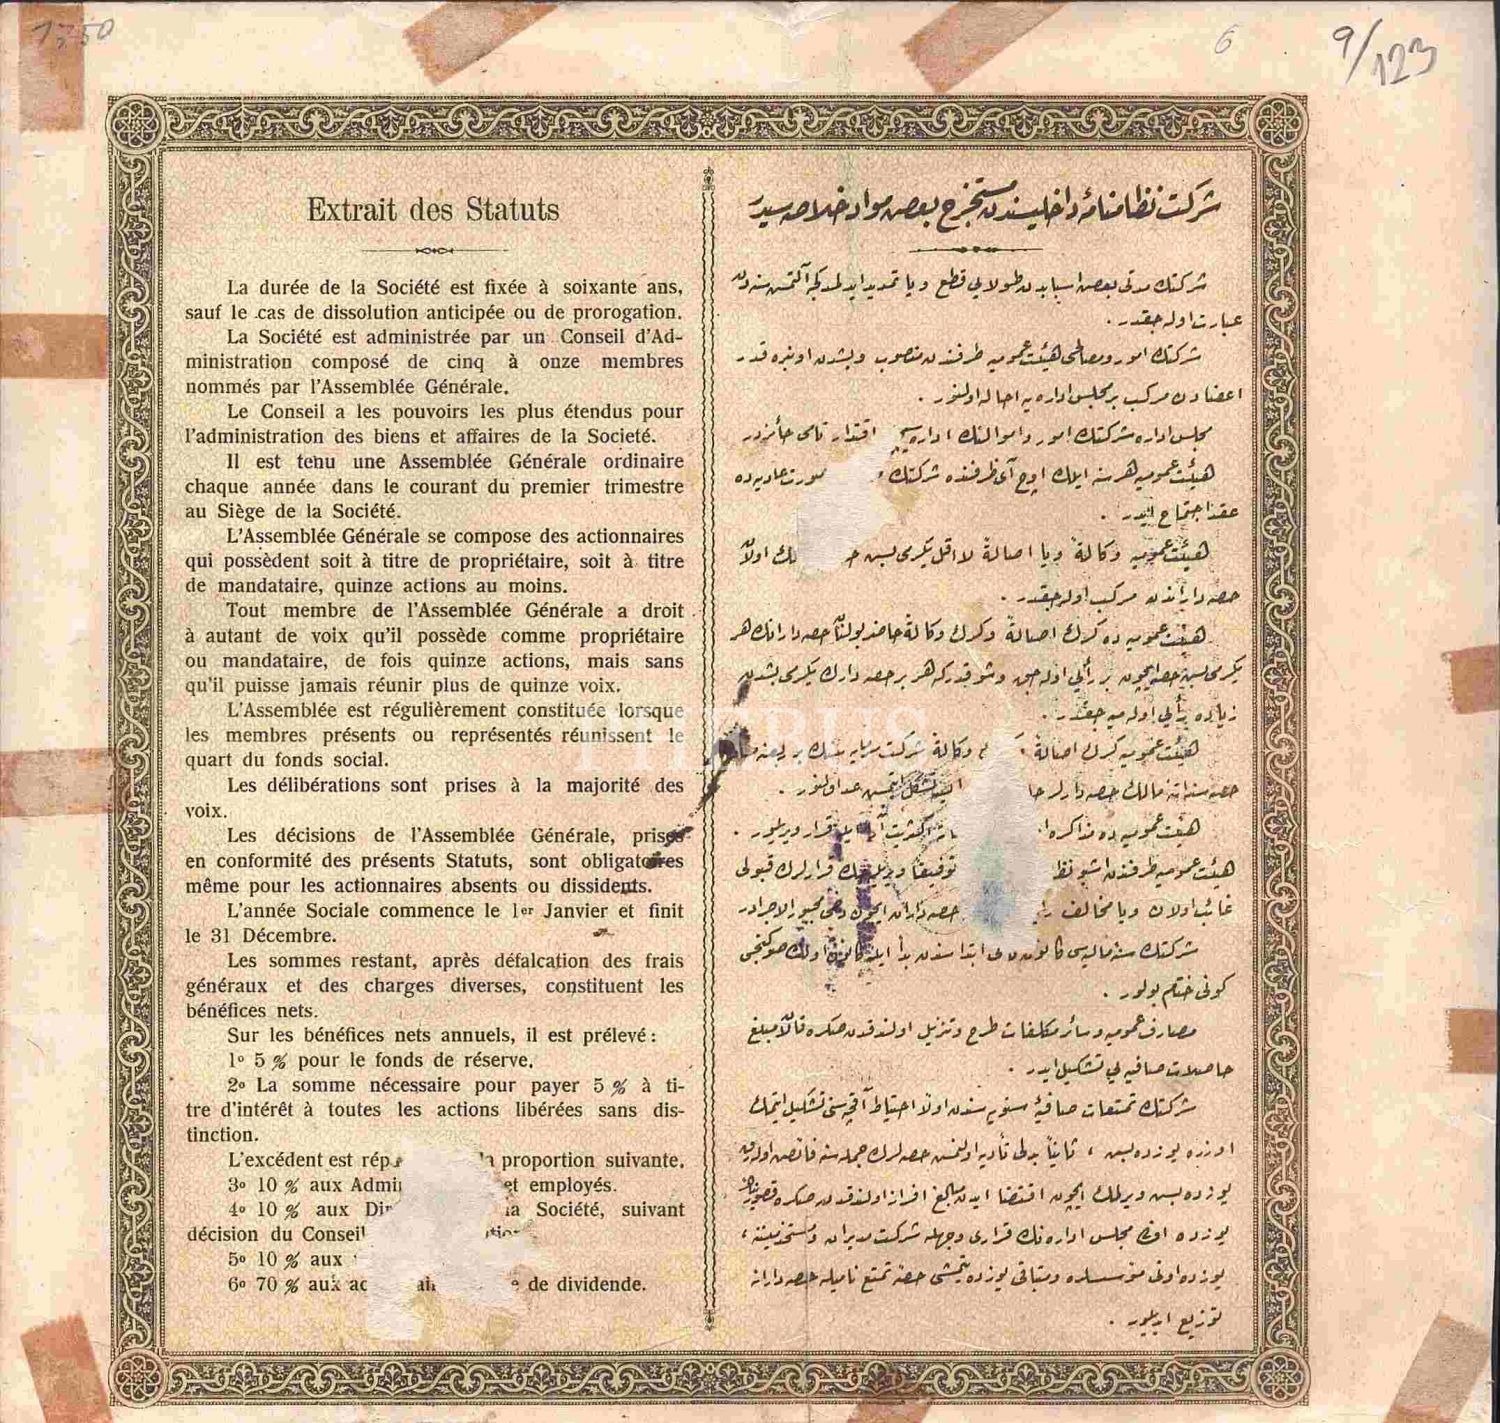 1750
6
9/123
Extrait des Statuts
La durée de la Société est fixée à soixante ans,
sauf le cas de dissolution anticipée ou de prorogation.
La Société est administrée par un Conseil d'Ad-
ministration composé de cinq à onze membres
nommés par l'Assemblée Générale.
Le Conseil a les pouvoirs les plus étendus pour
l'administration des biens et affaires de la Societé.
Il est tenu une Assemblée Générale ordinaire
chaque année dans le courant du premier trimestre
au Siège de la Société.
L'Assemblée Générale se compose des actionnaires
qui possèdent soit à titre de propriétaire, soit à titre
de mandataire, quinze actions au moins.
Tout membre de l'Assemblée Générale a droit
à autant de voix qu'il possède comme propriétaire
ou mandataire, de fois quinze actions, mais sans
qu'il puisse jamais réunir plus de quinze voix.
L'Assemblée est régulièrement constituée lorsque
les membres présents ou représentés réunissent le
quart du fonds social.
Les délibérations sont prises à la majorité des
voix.
Les décisions de l'Assemblée Générale, prises
en conformité des présents Statuts, sont obligatoires
même pour les actionnaires absents ou dissidents.
L'année Sociale commence le 1er Janvier et finit
le 31 Décembre.
Les sommes restant, après défalcation des frais
généraux et des charges diverses, constituent les
bénéfices nets.
Sur les bénéfices nets annuels, il est prélevé :
1o 5 % pour le fonds de réserve.
2o La somme nécessaire pour payer 5 % à ti-
tre d'intérêt à toutes les actions libérées sans dis-
tinction.
L'excédent est la proportion suivante.
3o 10 % aux et employés.
4o 10 % aux la Société, suivant
décision du Conseil
5o 10 % aux
6o 70 % aux de dividende.
شركت نظامنامهٔ داخليسندن مستخرج بعض مواد خلاصه سيدر
شركتك مدتى بعض اسبابدن طولايى قطع ويا تمديد ايدلمدكجه آلتمش سنه دن
عبارت اوله جقدر .
شركتك امور ومصالحى هيئت عموميه طرفندن منصوب وبشدن اون بره قدر
اعضادن مركب بر مجلس اداره يه احاله اولنور .
مجلس اداره شركتك امور واموالنك اداره سيچون اقتدار تامى حائزدر
هيئت عموميه هر سنه ايلك اوچ آى ظرفنده شركتك صورت عاديه ده
عقد اجتماع ايدر .
هيئت عموميه وكالةً ويا اصالةً لااقل يكرمى بش اولان
حصه دارانذن مركب اوله جقدر .
هيئت عموميه ده كرك اصالةً وكرك وكالةً حاضر بولنان حصه دارانك هر
يكرمى بش حصه ايچون بر رأيى اوله جق وشو قدر كه هر بر حصه دارك يكرمى بشدن
زياده رأيى اوله ميه جقدر .
هيئت عموميه كرك اصالةً وكالةً شركت سرمايه سنك بر ربعنه
حصه سنداتنه مالك حصه دارلر تشكل ايتمش عد اولنور .
هيئت عموميه ده مذاكره اكثريت آرا ايله قرار ويريلور .
هيئت عموميه طرفندن اشبو توفيقاً ويريله جك قرارلرك قبولى
غائب اولان ويا مخالف حصه داران ايچون دخى مجبور الاجرادر
شركتك سنهٔ ماليه سى كانون ثانى ابتداسندن بدأ ايله كانون اولك صوكنجى
كونى ختام بولور .
مصارف عموميه وسائر مكلفات طرح وتنزيل اولندقدن صكره قالان مبلغ
حاصلات صافيه يى تشكيل ايدر .
شركتك تمتعات صافيهٔ سنويه سندن اولا احتياط آقچه سنى تشكيل ايتمك
اوزره يوزده بش ، ثانياً بدلى تأديه اولنمش حصه لرك جمله سنه فائض اوله رق
يوزده بش ويرلمك ايچون اقتضا ايدن مبالغ افراز اولندقدن صكره
يوزده اونى مجلس اداره نك قرارى وجهله شركت مديران ومستخدمينه ،
يوزده اونى مؤسسلره ومتباقى يوزده يتمشى حصهٔ تمتع ناميله حصه دارانه
توزيع ايديلور .